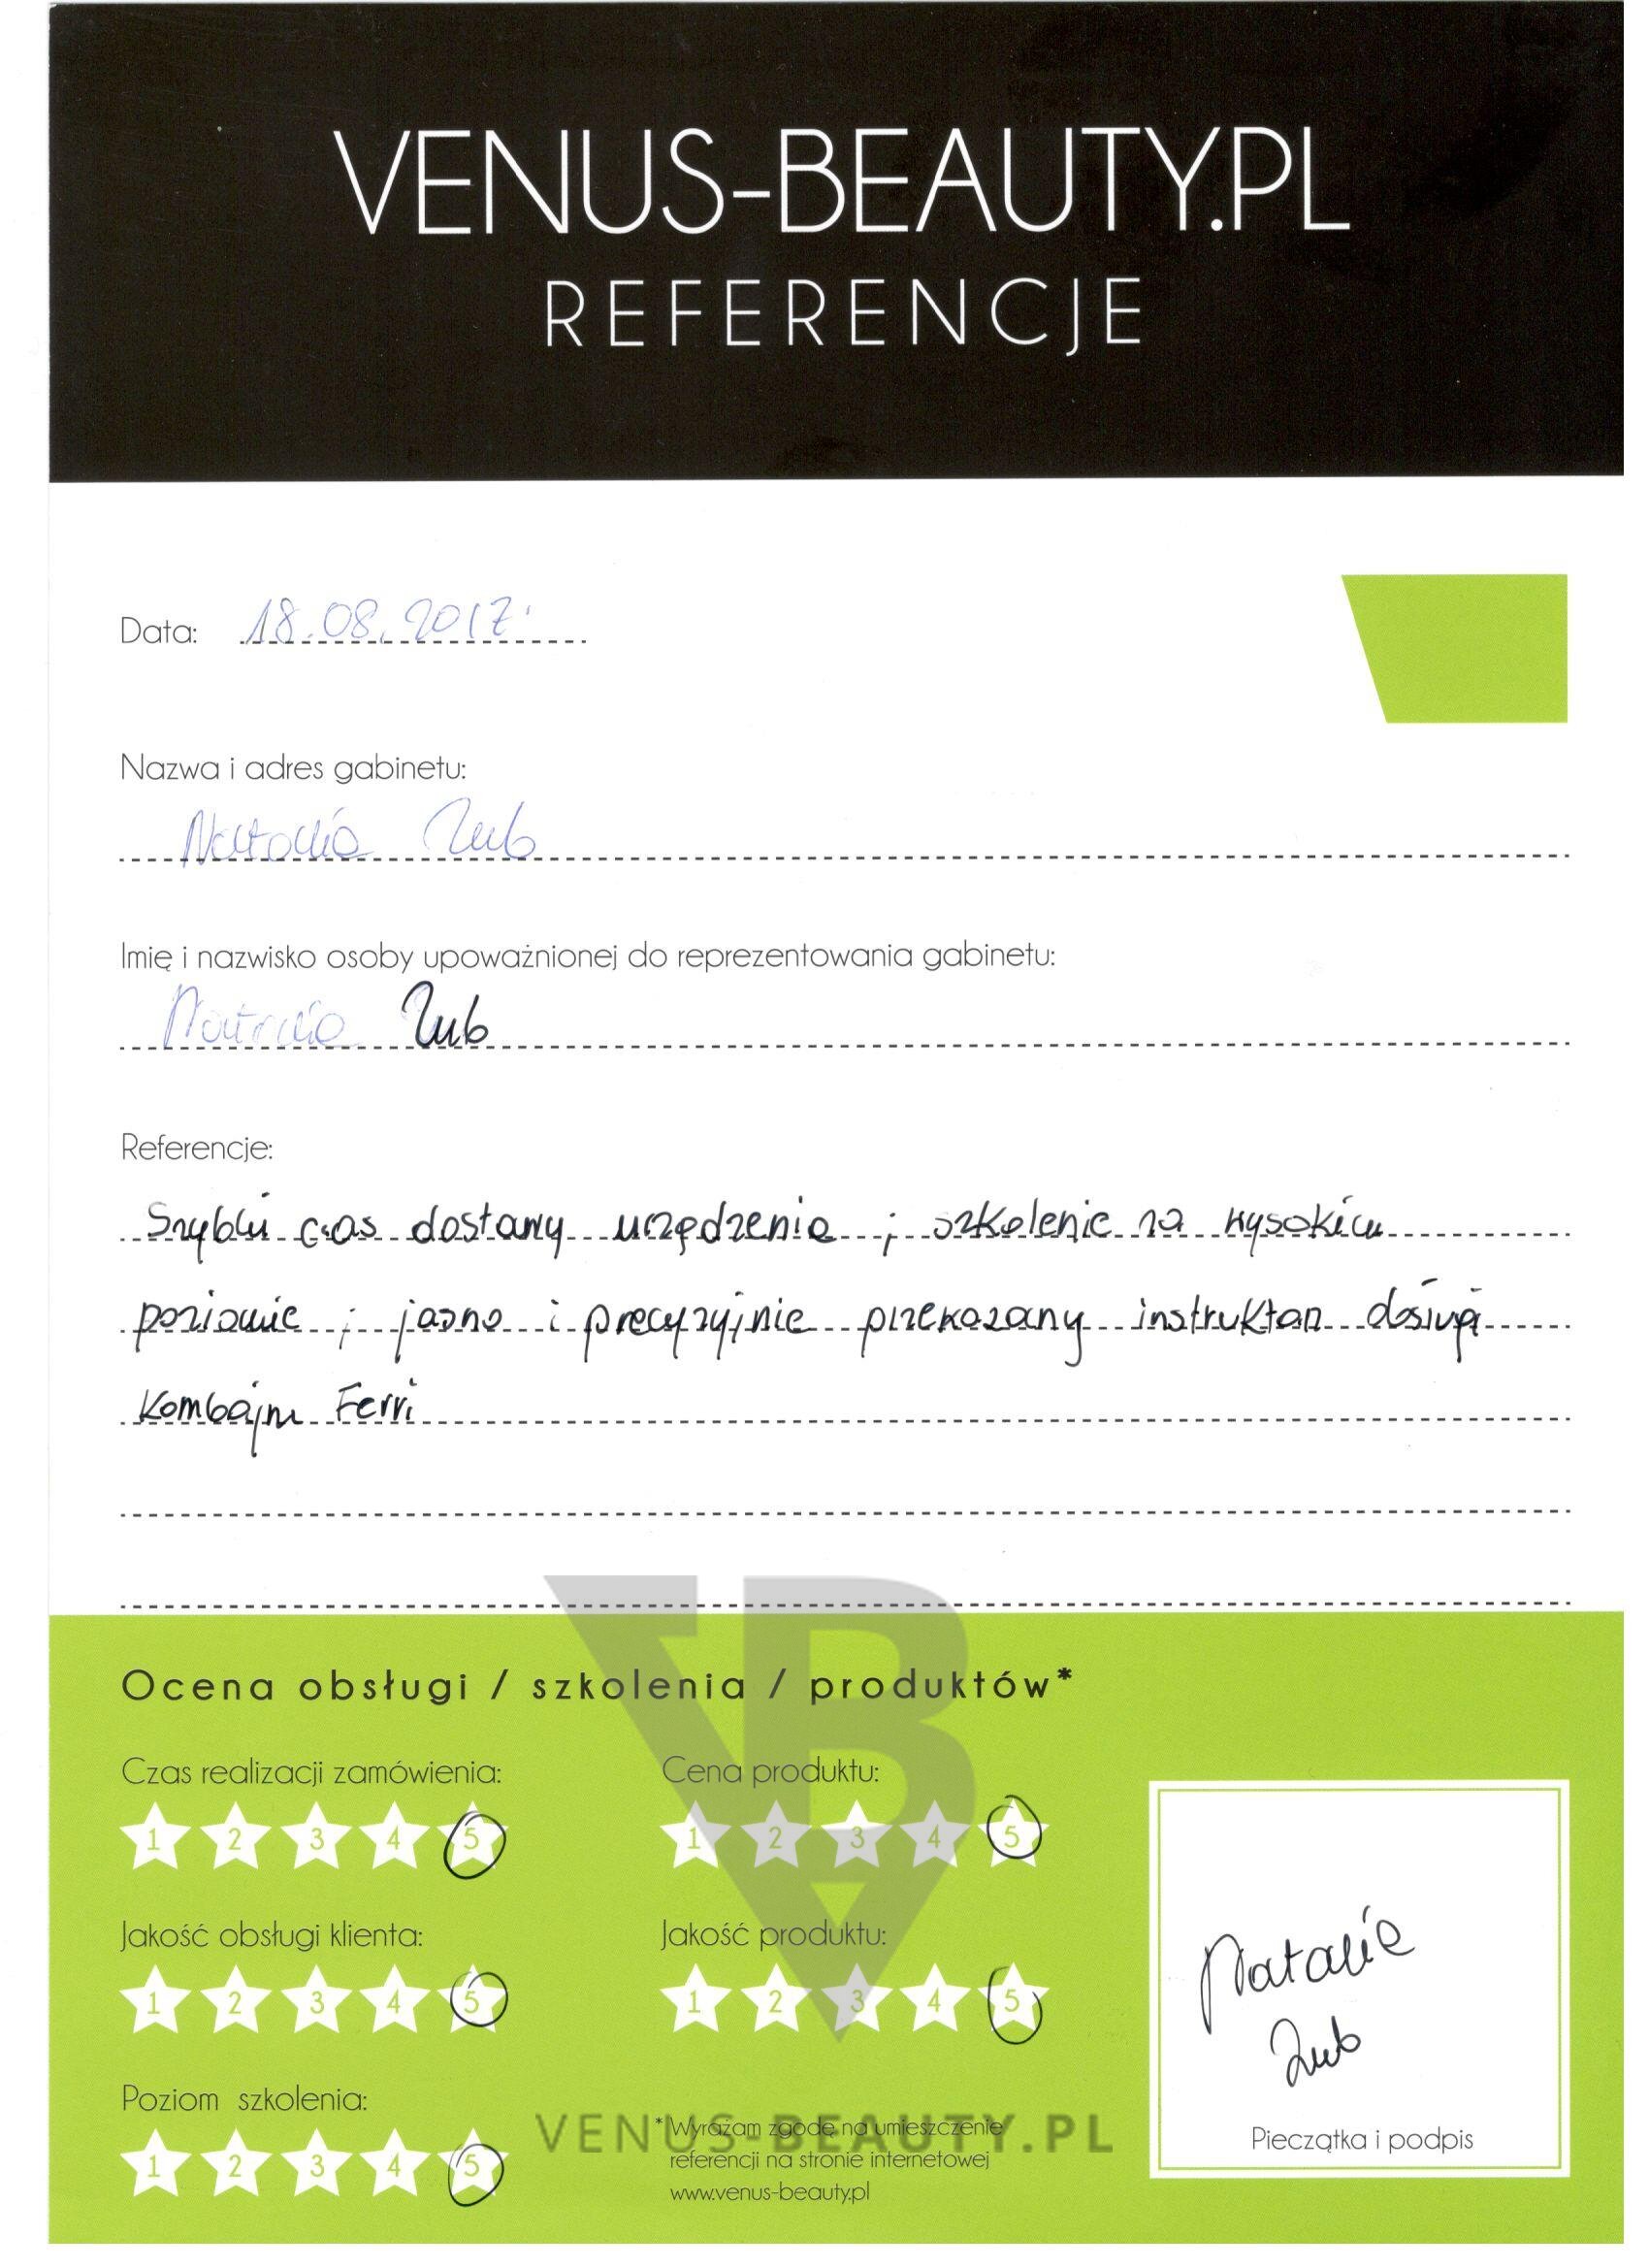 VENUS-BEAUTY.PL
REFERENCJE
Data: 18.08.2017.
Nazwa i adres gabinetu:
Natalia Zub
Imię i nazwisko osoby upoważnionej do reprezentowania gabinetu:
Natalia Zub
Referencje:
Szybki czas dostawy urządzenia ; szkolenie na wysokim
poziomie ; jasno i precyzyjnie przekazany instruktaż
Kombajnu Ferri
Ocena obsługi / szkolenia / produktów*
Czas realizacji zamówienia: Cena produktu:
1 2 3 4 5 1 2 3 4 5
Jakość obsługi klienta: Jakość produktu:
1 2 3 4 5 1 2 3 4 5
Natalia
Zub
Poziom szkolenia:
1 2 3 4 5
* Wyrażam zgodę na umieszczenie
referencji na stronie internetowej
www.venus-beauty.pl
Pieczątka i podpis
VB
VENUS-BEAUTY.PL